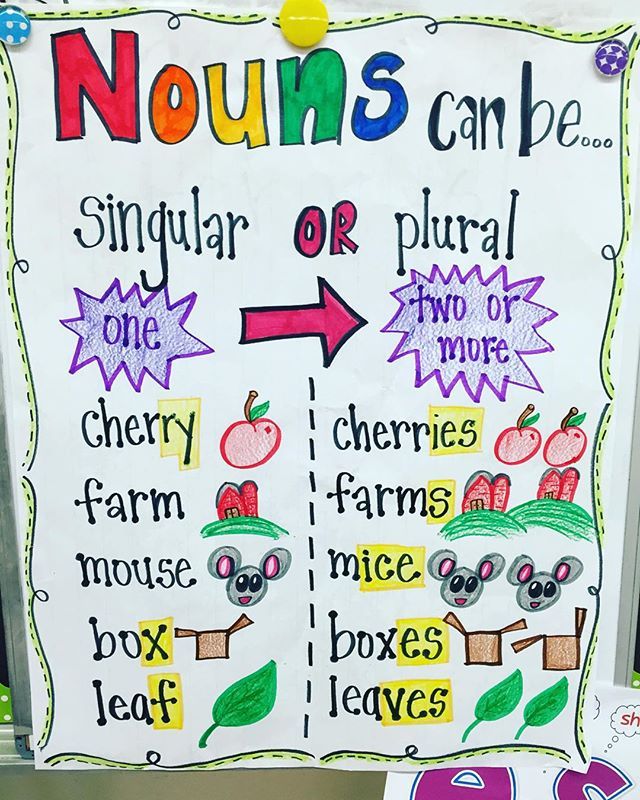 Nouns can be...
singular OR plural
one
two or
more
cherry cherries
farm farms
mouse mice
box boxes
leaf leaves
sh